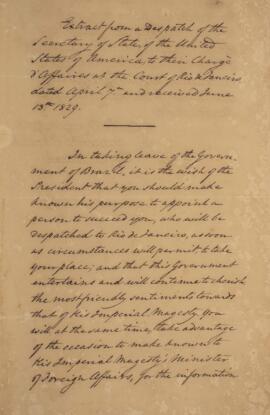 Extract from a Despatch of the
Secretary of State, of the United
States of America to their Chargé
d'Affaires at the Court of Rio de Janeiro,
dated April 7th and received June
13th 1829.
In taking leave of the Govern-
ment of Brazil, it is the wish of the
President that you should make
known his purpose to appoint a
person to succeed you, who will be
despatched to Rio de Janeiro, as soon
as circumstances will permit to take
your place; and that this Government
entertains and will continue to cherish
the most friendly sentiments towards
that of His Imperial Majesty. You
will at the same time, take advantage
of the occasion to make known to
His Imperial Majesty's Minister
of Foreign Affairs, for the information